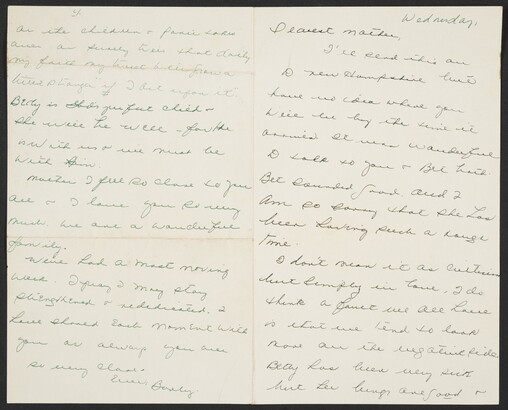 Wednesday,
Dearest Mother,
I'll send this on
to New Hampshire but
have no idea where you
will be by the time it
arrives. It was wonderful
to talk to you & Bet
Bet sounded good and I
am so sorry that she has
been having such a rough
time.
I don't mean it as criticism
but simply in love, I do
think a fault we all have
is that we tend to look
now on the negative side
Betty has been very sick
but her lungs are good &
4.
on the children &
over so surely
my faith my trust
if I bet upon it
Betty is God's perfect child &
she will be well - for He
is with us & we must be
with Him
Mother I feel so close to you
all & I love you so very
much. We are a wonderful
family.
We've had a most moving
week. I pray I may stay
strengthened & rededicated. I
have shared each moment with
you as always you are
so very close.